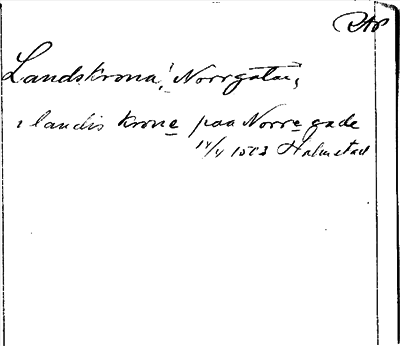 Landskrona, Norrgatan,
i landis krone paa Norre gade
14/4 1583 Halmstad